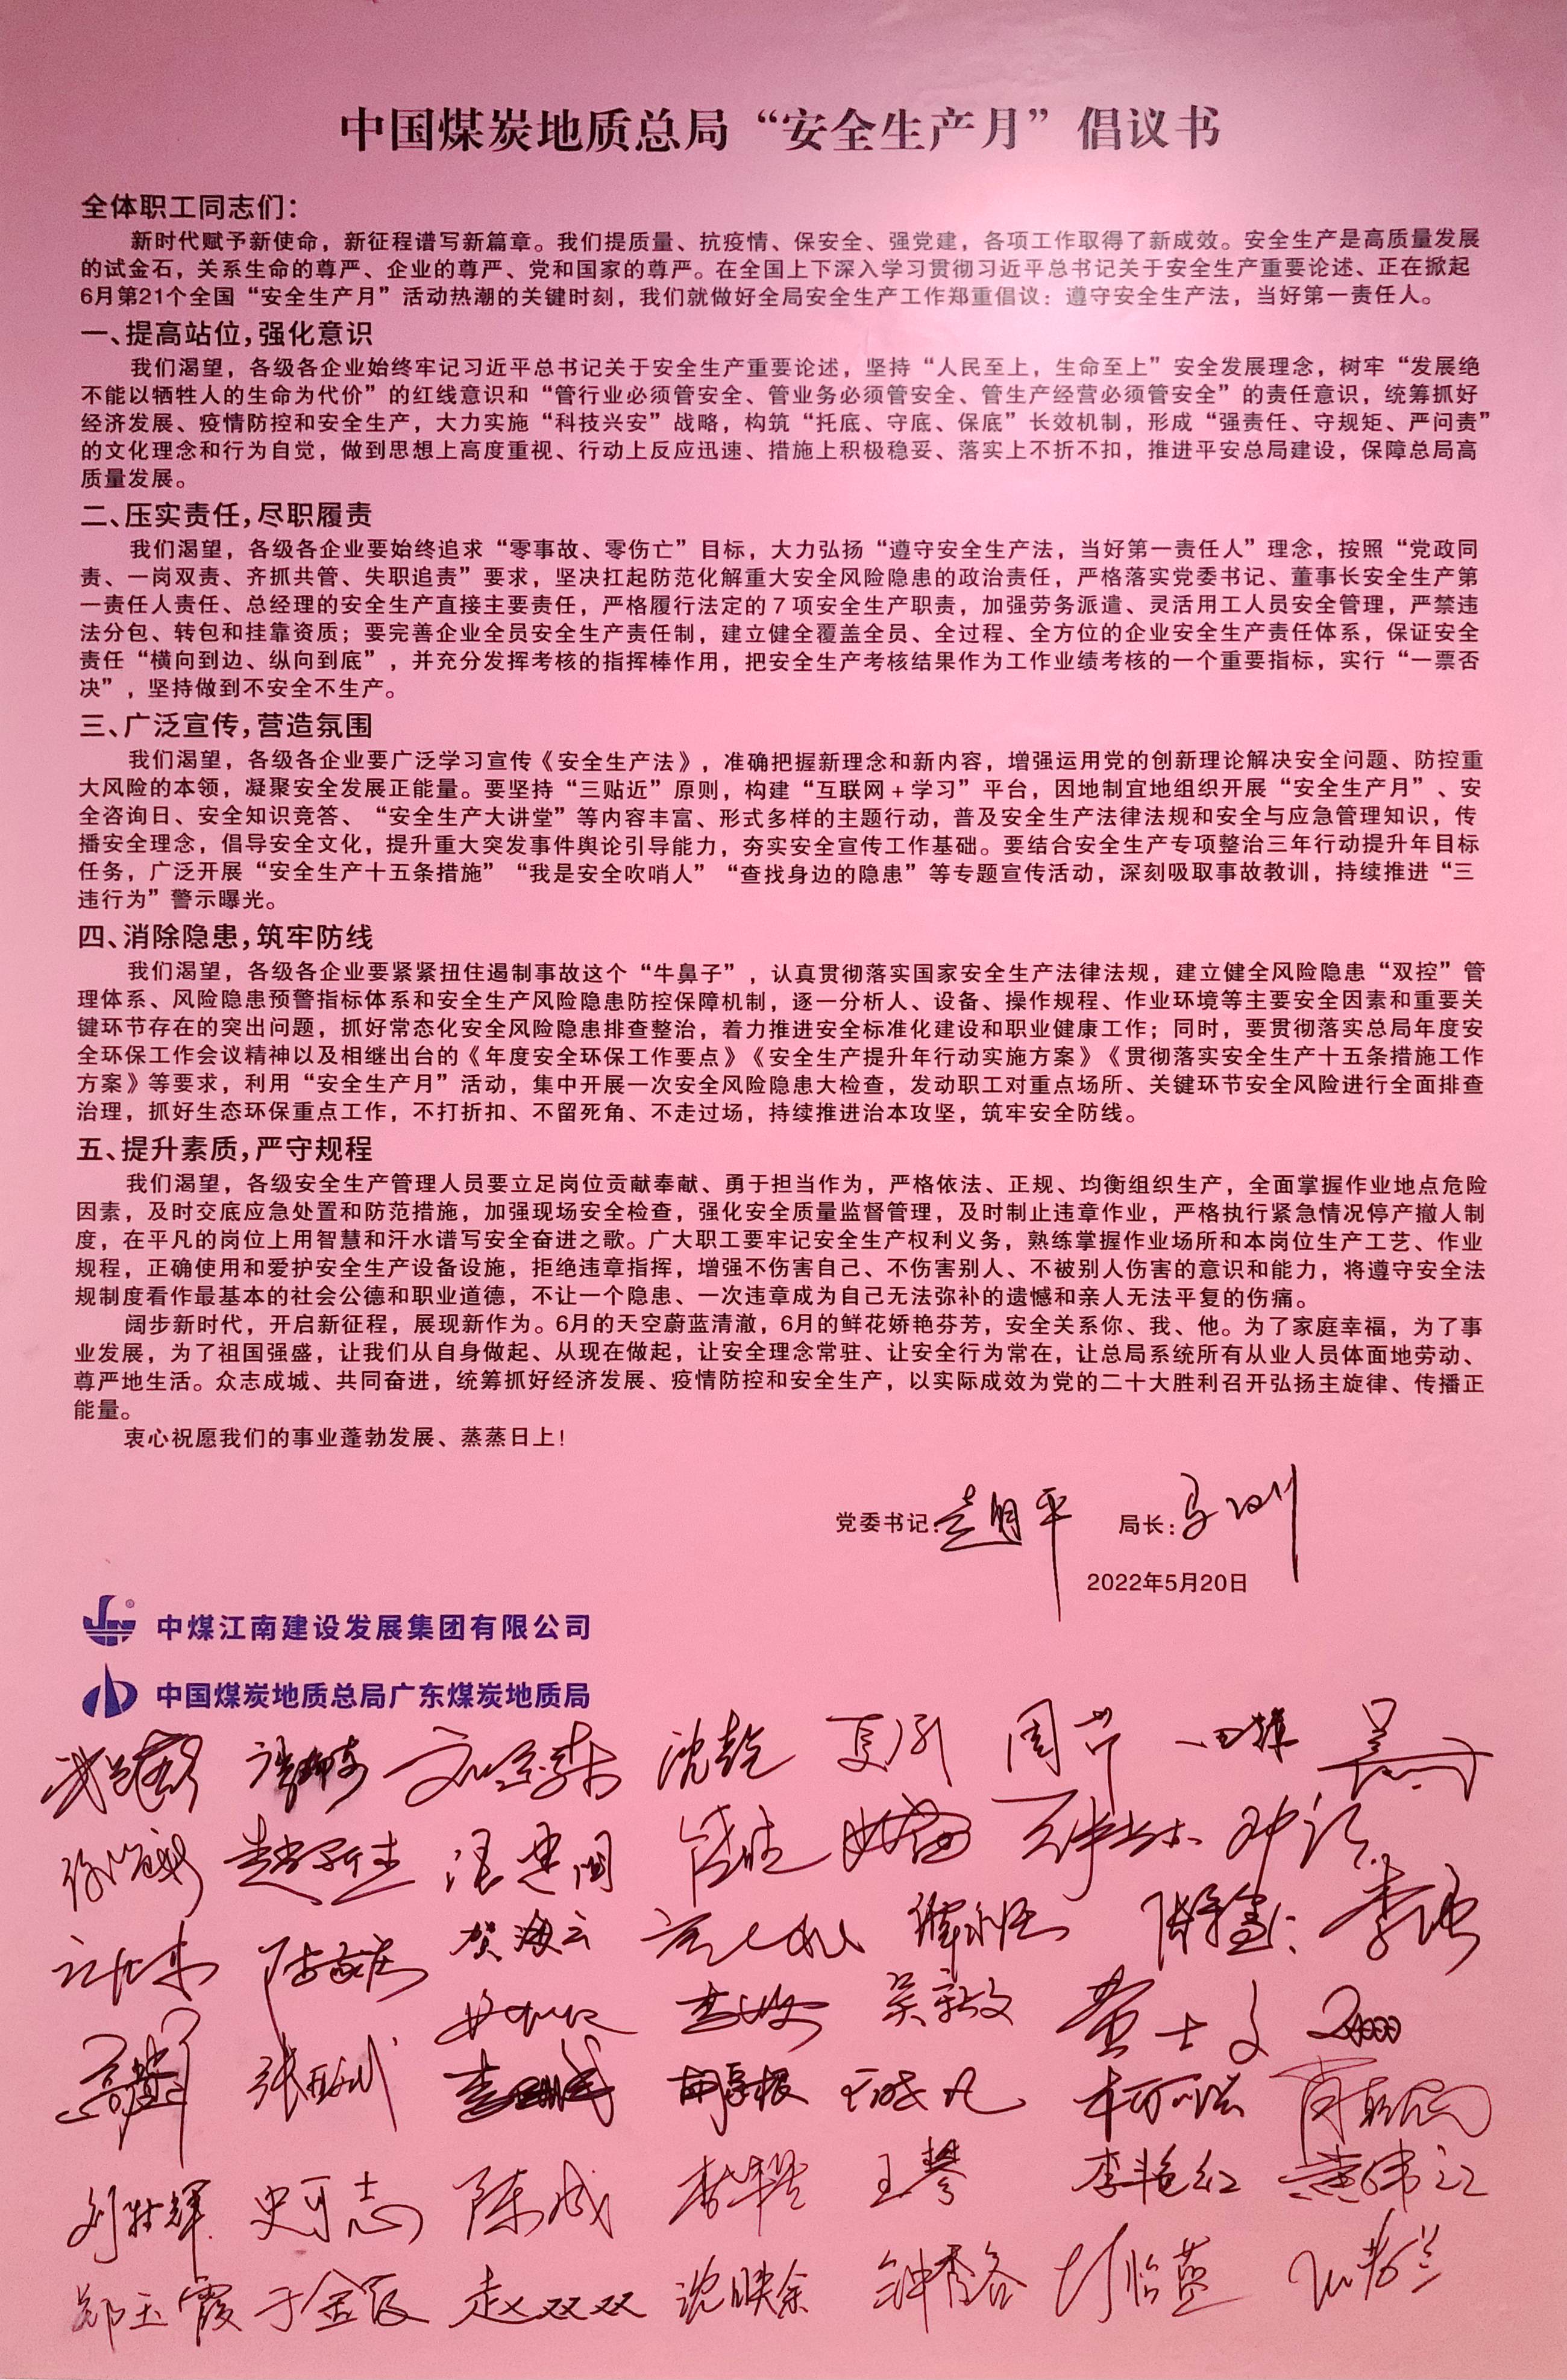 中国煤炭地质总局“安全生产月”倡议书
全体职工同志们：
新时代赋予新使命，新征程谱写新篇章。我们提质量、抗疫情、保安全、强党建，各项工作取得了新成效。安全生产是高质量发展
的试金石，关系生命的尊严、企业的尊严、党和国家的尊严。在全国上下深入学习贯彻习近平总书记关于安全生产重要论述、正在掀起
6月第21个全国“安全生产月”活动热潮的关键时刻，我们就做好全局安全生产工作郑重倡议：遵守安全生产法，当好第一责任人。
一、提高站位，强化意识
我们渴望，各级各企业始终牢记习近平总书记关于安全生产重要论述，坚持“人民至上，生命至上”安全发展理念，树牢“发展绝
不能以牺牲人的生命为代价”的红线意识和“管行业必须管安全、管业务必须管安全、管生产经营必须管安全”的责任意识，统筹抓好
经济发展、疫情防控和安全生产，大力实施“科技兴安”战略，构筑“托底、守底、保底”长效机制，形成“强责任、守规矩、严问责”
的文化理念和行为自觉，做到思想上高度重视、行动上反应迅速、措施上积极稳妥、落实上不折不扣，推进平安总局建设，保障总局高
质量发展。
二、压实责任，尽职履责
我们渴望，各级各企业要始终追求“零事故、零伤亡”目标，大力弘扬“遵守安全生产法，当好第一责任人”理念，按照“党政同
责、一岗双责、齐抓共管、失职追责”要求，坚决扛起防范化解重大安全风险隐患的政治责任，严格落实党委书记、董事长安全生产第
一责任人责任、总经理的安全生产直接主要责任，严格履行法定的7项安全生产职责，加强劳务派遣、灵活用工人员安全管理，严禁违
法分包、转包和挂靠资质；要完善企业全员安全生产责任制，建立健全覆盖全员、全过程、全方位的企业安全生产责任体系，保证安全
责任“横向到边、纵向到底”，并充分发挥考核的指挥棒作用，把安全生产考核结果作为工作业绩考核的一个重要指标，实行“一票否
决”，坚持做到不安全不生产。
三、广泛宣传，营造氛围
我们渴望，各级各企业要广泛学习宣传《安全生产法》，准确把握新理念和新内容，增强运用党的创新理论解决安全问题、防控重
大风险的本领，凝聚安全发展正能量。要坚持“三贴近”原则，构建“互联网+学习”平台，因地制宜地组织开展“安全生产月”、安
全咨询日、安全知识竞答、“安全生产大讲堂”等内容丰富、形式多样的主题行动，普及安全生产法律法规和安全与应急管理知识，传
播安全理念，倡导安全文化，提升重大突发事件舆论引导能力，夯实安全宣传工作基础。要结合安全生产专项整治三年行动提升年目标
任务，广泛开展“安全生产十五条措施”“我是安全吹哨人”“查找身边的隐患”等专题宣传活动，深刻吸取事故教训，持续推进“三
违行为”警示曝光。
四、消除隐患，筑牢防线
我们渴望，各级各企业要紧紧扭住遏制事故这个“牛鼻子”，认真贯彻落实国家安全生产法律法规，建立健全风险隐患“双控”管
理体系、风险隐患预警指标体系和安全生产风险隐患防控保障机制，逐一分析人、设备、操作规程、作业环境等主要安全因素和重要关
键环节存在的突出问题，抓好常态化安全风险隐患排查整治，着力推进安全标准化建设和职业健康工作；同时，要贯彻落实总局年度安
全环保工作会议精神以及相继出台的《年度安全环保工作要点》《安全生产提升年行动实施方案》《贯彻落实安全生产十五条措施工作
方案》等要求，利用“安全生产月”活动，集中开展一次安全风险隐患大检查，发动职工对重点场所、关键环节安全风险进行全面排查
治理，抓好生态环保重点工作，不打折扣、不留死角、不走过场，持续推进治本攻坚，筑牢安全防线。
五、提升素质，严守规程
我们渴望，各级安全生产管理人员要立足岗位贡献奉献、勇于担当作为，严格依法、正规、均衡组织生产，全面掌握作业地点危险
因素，及时交底应急处置和防范措施，加强现场安全检查，强化安全质量监督管理，及时制止违章作业，严格执行紧急情况停产撤人制
度，在平凡的岗位上用智慧和汗水谱写安全奋进之歌。广大职工要牢记安全生产权利义务，熟练掌握作业场所和本岗位生产工艺、作业
规程，正确使用和爱护安全生产设备设施，拒绝违章指挥，增强不伤害自己、不伤害别人、不被别人伤害的意识和能力，将遵守安全法
规制度看作最基本的社会公德和职业道德，不让一个隐患、一次违章成为自己无法弥补的遗憾和亲人无法平复的伤痛。
阔步新时代，开启新征程，展现新作为。6月的天空蔚蓝清澈，6月的鲜花娇艳芬芳，安全关系你、我、他。为了家庭幸福，为了事
业发展，为了祖国强盛，让我们从自身做起、从现在做起，让安全理念常驻、让安全行为常在，让总局系统所有从业人员体面地劳动、
尊严地生活。众志成城、共同奋进，统筹抓好经济发展、疫情防控和安全生产，以实际成效为党的二十大胜利召开弘扬主旋律、传播正
能量。
衷心祝愿我们的事业蓬勃发展、蒸蒸日上！
党委书记：赵平 局长：
2022年5月20日
中煤江南建设发展集团有限公司
中国煤炭地质总局广东煤炭地质局
沈乾 周芳 吴
贺海云 李强
吴新文 黄士文
胡厚根
史可志 陈成 王琴 李艳红 黄伟江
郑玉霞 于金良 赵双双 沈映余 钟秀谷 怡蓝